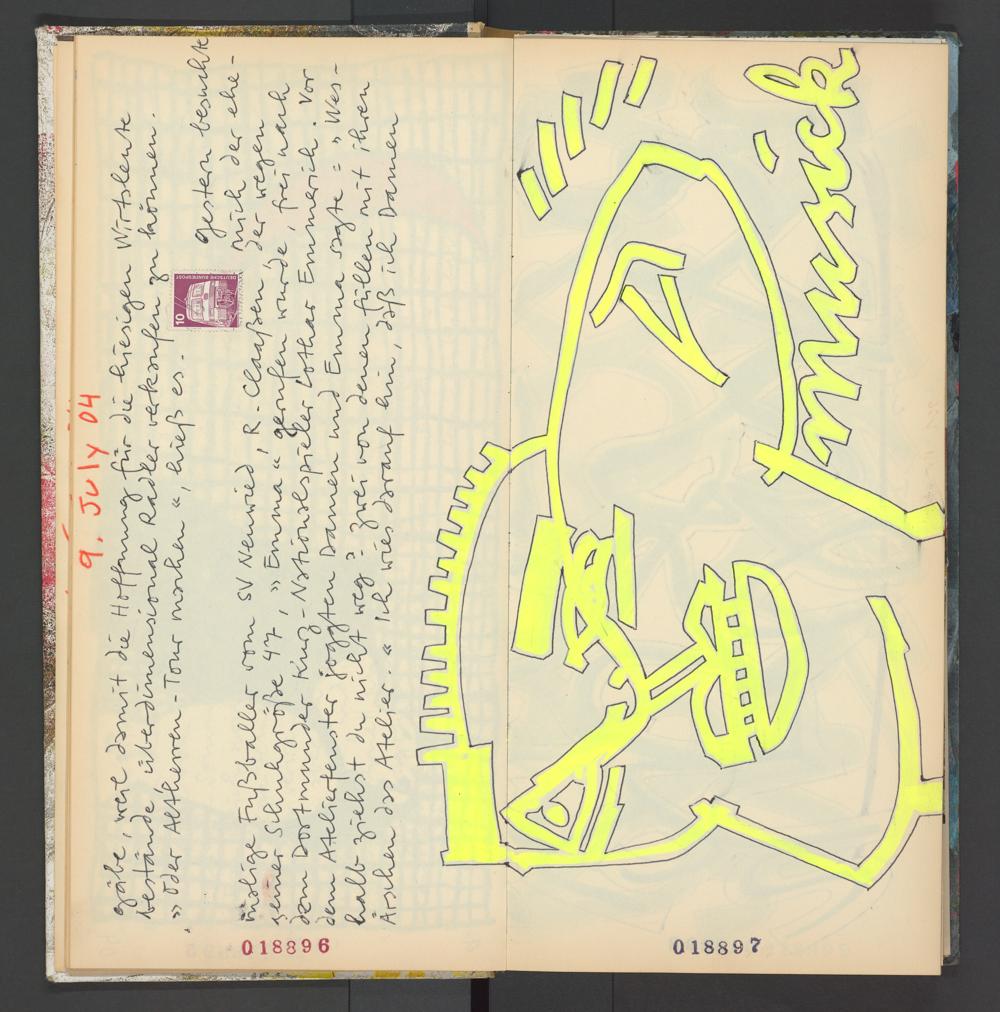 9. July 04
gäbe, weil damit die Hoffnung für die hiesigen Wirtsleute
bestände, überdimensional Radler verkaufen zu können.
„Oder Altherren-Tour machen“, hieß es.
10
DEUTSCHE BUNDESPOST
gestern besuchte
mich der ehe-
malige Fußballer vom SV Neuwied, R. Claaßen der wegen
seiner Schuhgröße 47, „Emma“ gerufen wurde, frei nach
dem Dortmunder Kurz-Nationalspieler Lothar Emmerich. Vor
dem Atelierfenster joggten Damen und Emma sagte: „Wes-
halb ziehst du nicht weg? Zwei von denen füllen mit ihren
Ärschen das Atelier.“ Ich wies darauf hin, daß ich Damen
018896
musick
018897